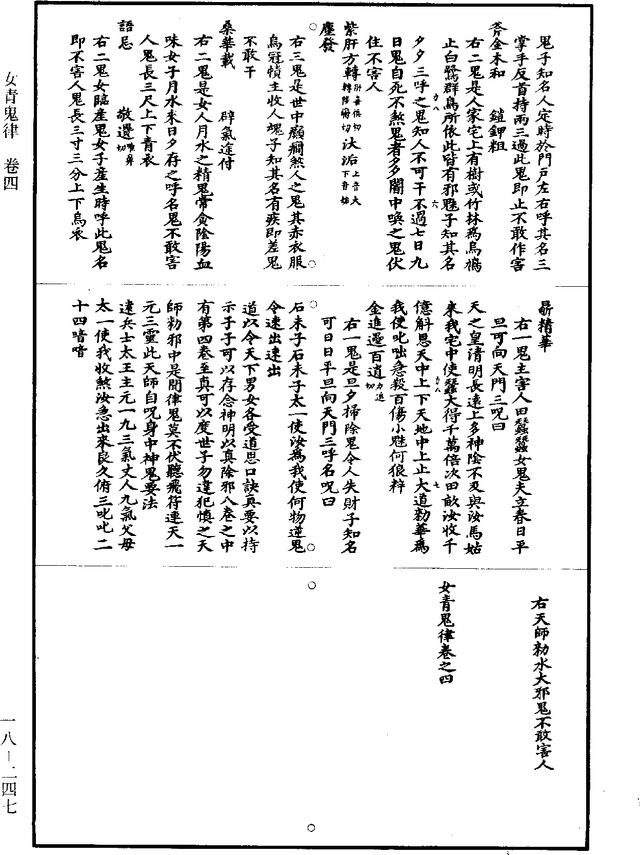 鬼子知名人定時於門戸左右呼其名三
掌手反首持兩三過此鬼即止不敢作害
斧金木和　鎚鉀粗
右二鬼是人家宅上有樹或竹林為烏鵶
止白鷺群鳥所依此皆有邪魅子知其名
夕夕三呼之鬼知人不可干不過七日九
日鬼自死不煞鬼者夕夕闇中喚之鬼伏
住不害人
紫肝方轉
塵發
右三鬼是世中癲癎煞人之鬼其赤衣服
烏冠幘主收人魂子知其名有疾即差鬼
不敢干
桑華載　辟氣逢付
右二鬼是女人月水之精鬼常食陰陽血
味女子月水来日夕存之呼名鬼不敢害
人鬼長三尺上下青衣
語忌　敬遺
右二鬼女臨産鬼女子産生時呼此鬼名
即不害人鬼長三寸三分上下烏衣
精華
右一鬼主害人田蠶蠶女鬼夫立春日平
旦可向天門三呪曰
天之皇清明長遠上多神陰不及與汝馬姑
來我宅中使蠶大得千萬倍次田畝汝收千
億斛思天中上下天地中上止大道勑華為
我使叱咄急殺百傷小魅何狼粹
金進邊百道
右一鬼是旦夕掃除鬼令人失財子知名
可日日平旦向天門三呼名呪曰
石未子石未子太一使汝為我使何物逆鬼
令速出速出
道以令天下男女各受道思口訣真要以持
示子子可以存念神明以真除邪八卷之中
有第四卷至真可以度世子勿違犯慎之天
師勑邪中是聞律鬼莫不伏聽飛符連天一
元三靈此天師自呪身中神鬼要法
遠兵士太王主元一九三氣丈人九氣父母
太一使我收煞汝急出來良久俯三叱叱二
十四喑喑
右天師勑水大邪鬼不敢害人
女青鬼律卷之四
女青鬼律　卷四
一八—二四七